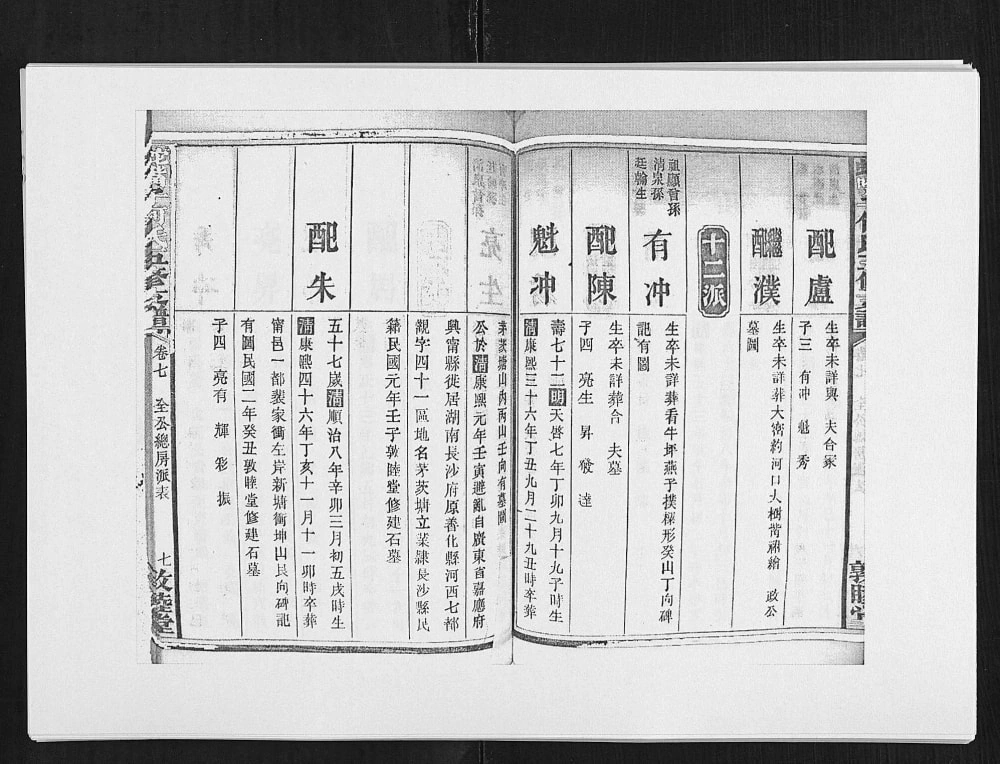 配盧
生卒未詳與 夫合冢
子三 有冲 魁 秀
繼配濮
生卒未詳葬大窩約河口大樹
墓圖
十二派
祖顯曾孫
清泉孫
廷翰生
有冲
生卒未詳葬看牛坪燕子撲樑形癸山丁向碑
記有圖
配陳
生卒未詳葬合 夫墓
子四 亮生 昇 發 達
魁冲
壽七十二明天啓七年丁卯九月十九子時生
清康熙三十六年丁丑九月二十九丑時卒葬
茅茨塘山內丙山壬向有墓圖
公於清康熙元年壬寅避亂自廣東省嘉應府
興甯縣徙居湖南長沙府原善化縣河西七都
觀字四十一區地名茅茨塘立業隸長沙縣民
籍民國元年壬子敦睦堂修建石墓
配朱
五十七歲清順治八年辛卯三月初五戌時生
清康熙四十六年丁亥十一月十一卯時卒葬
甯邑一都裴家衝左岸新塘衝坤山艮向碑記
有圖民國二年癸丑敦睦堂修建石墓
子四 亮有 輝 彩 振
五修支譜
卷七
全公總房派表
七
敦睦堂